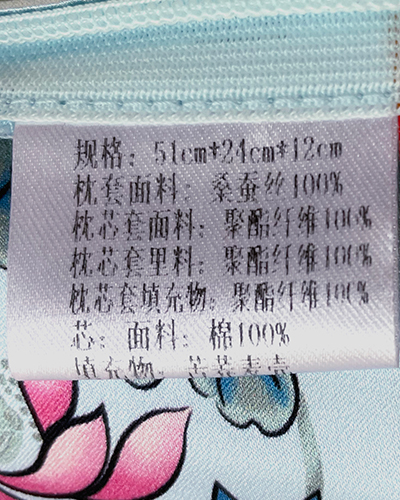 规格：51cm*24cm*12cm
枕套面料：桑蚕丝100%
枕芯套面料：聚酯纤维100%
枕芯套里料：聚酯纤维100%
枕芯套填充物：聚酯纤维100%
芯：面料：棉100%
填充物：苦荞麦壳